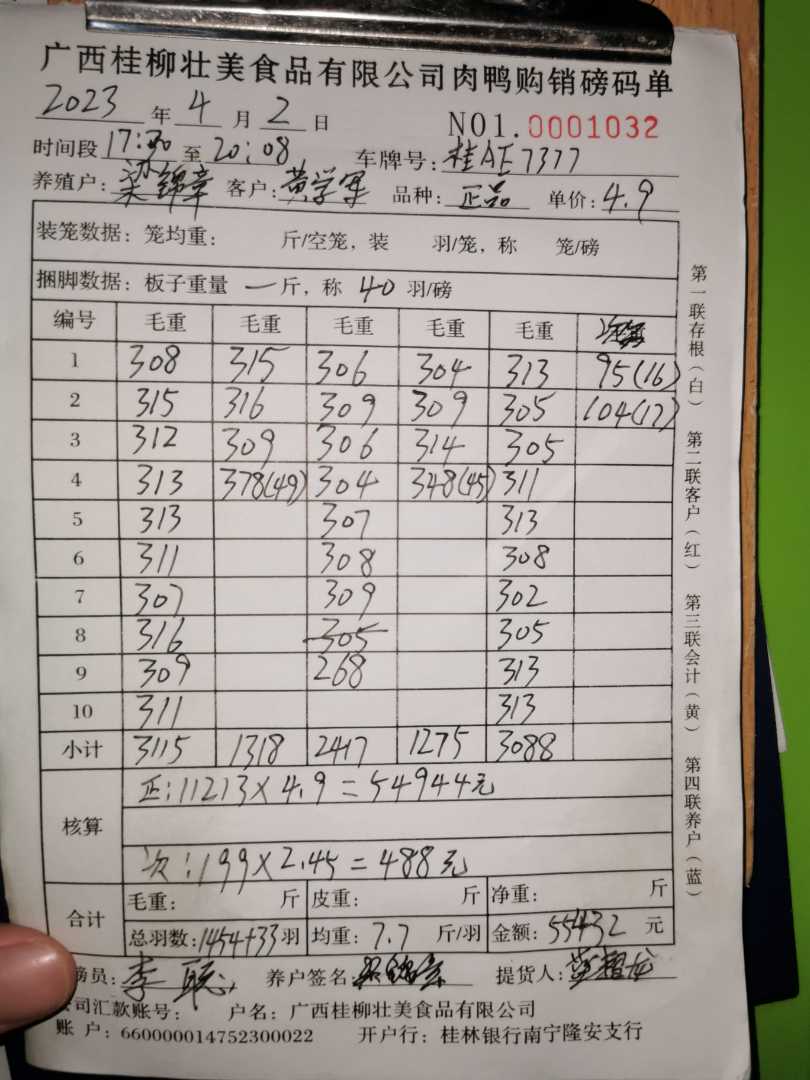 广西桂柳壮美食品有限公司肉鸭购销磅码单
2023 年 4 月 2 日 NO1.0001032
时间段 17:30 至 20:08 车牌号: 桂AE7377
养殖户: 梁锦章 客户: 黄学军 品种: 正品 单价: 4.9
装笼数据: 笼均重: 斤/空笼, 装 羽/笼, 称 笼/磅
捆脚数据: 板子重量 一 斤, 称 40 羽/磅
编号 毛重 毛重 毛重 毛重 毛重
1 308 315 306 304 313 95(16)
2 315 316 309 309 305 104(17)
3 312 309 306 314 305
4 313 378(49) 304 348(45) 311
5 313 307 313
6 311 308 308
7 307 309 302
8 316 305 305
9 309 268 313
10 311 313
小计 3115 1318 2417 1275 3088
核算
正:11213×4.9=54944元
次:199×2.45=488元
合计
毛重: 斤 皮重: 斤 净重: 斤
总羽数:1454+33羽 均重: 7.7 斤/羽 金额: 55432 元
磅员: 李聪 养户签名: 提货人:
公司汇款账号: 户名: 广西桂柳壮美食品有限公司
账户: 660000014752300022 开户行: 桂林银行南宁隆安支行
第一联存根(白) 第二联客户(红) 第三联会计(黄) 第四联养户(蓝)